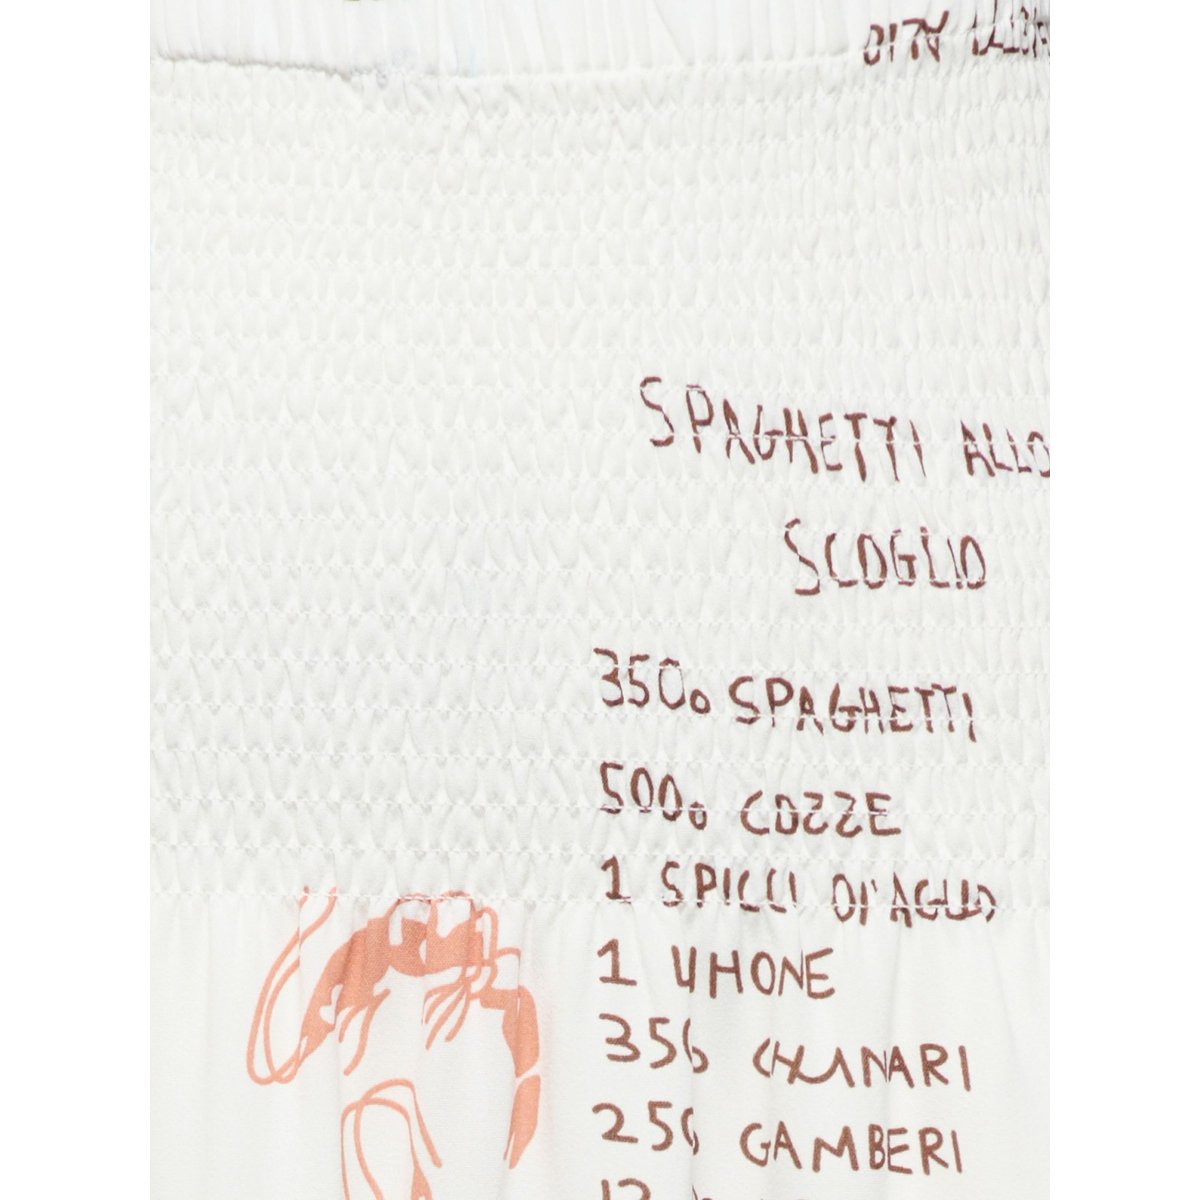 SPAGHETTI ALLO
SCOGLIO
350g SPAGHETTI
500g COZZE
1 SPICCI DI'AGLIO
1 LIMONE
350 CALAMARI
250 GAMBERI